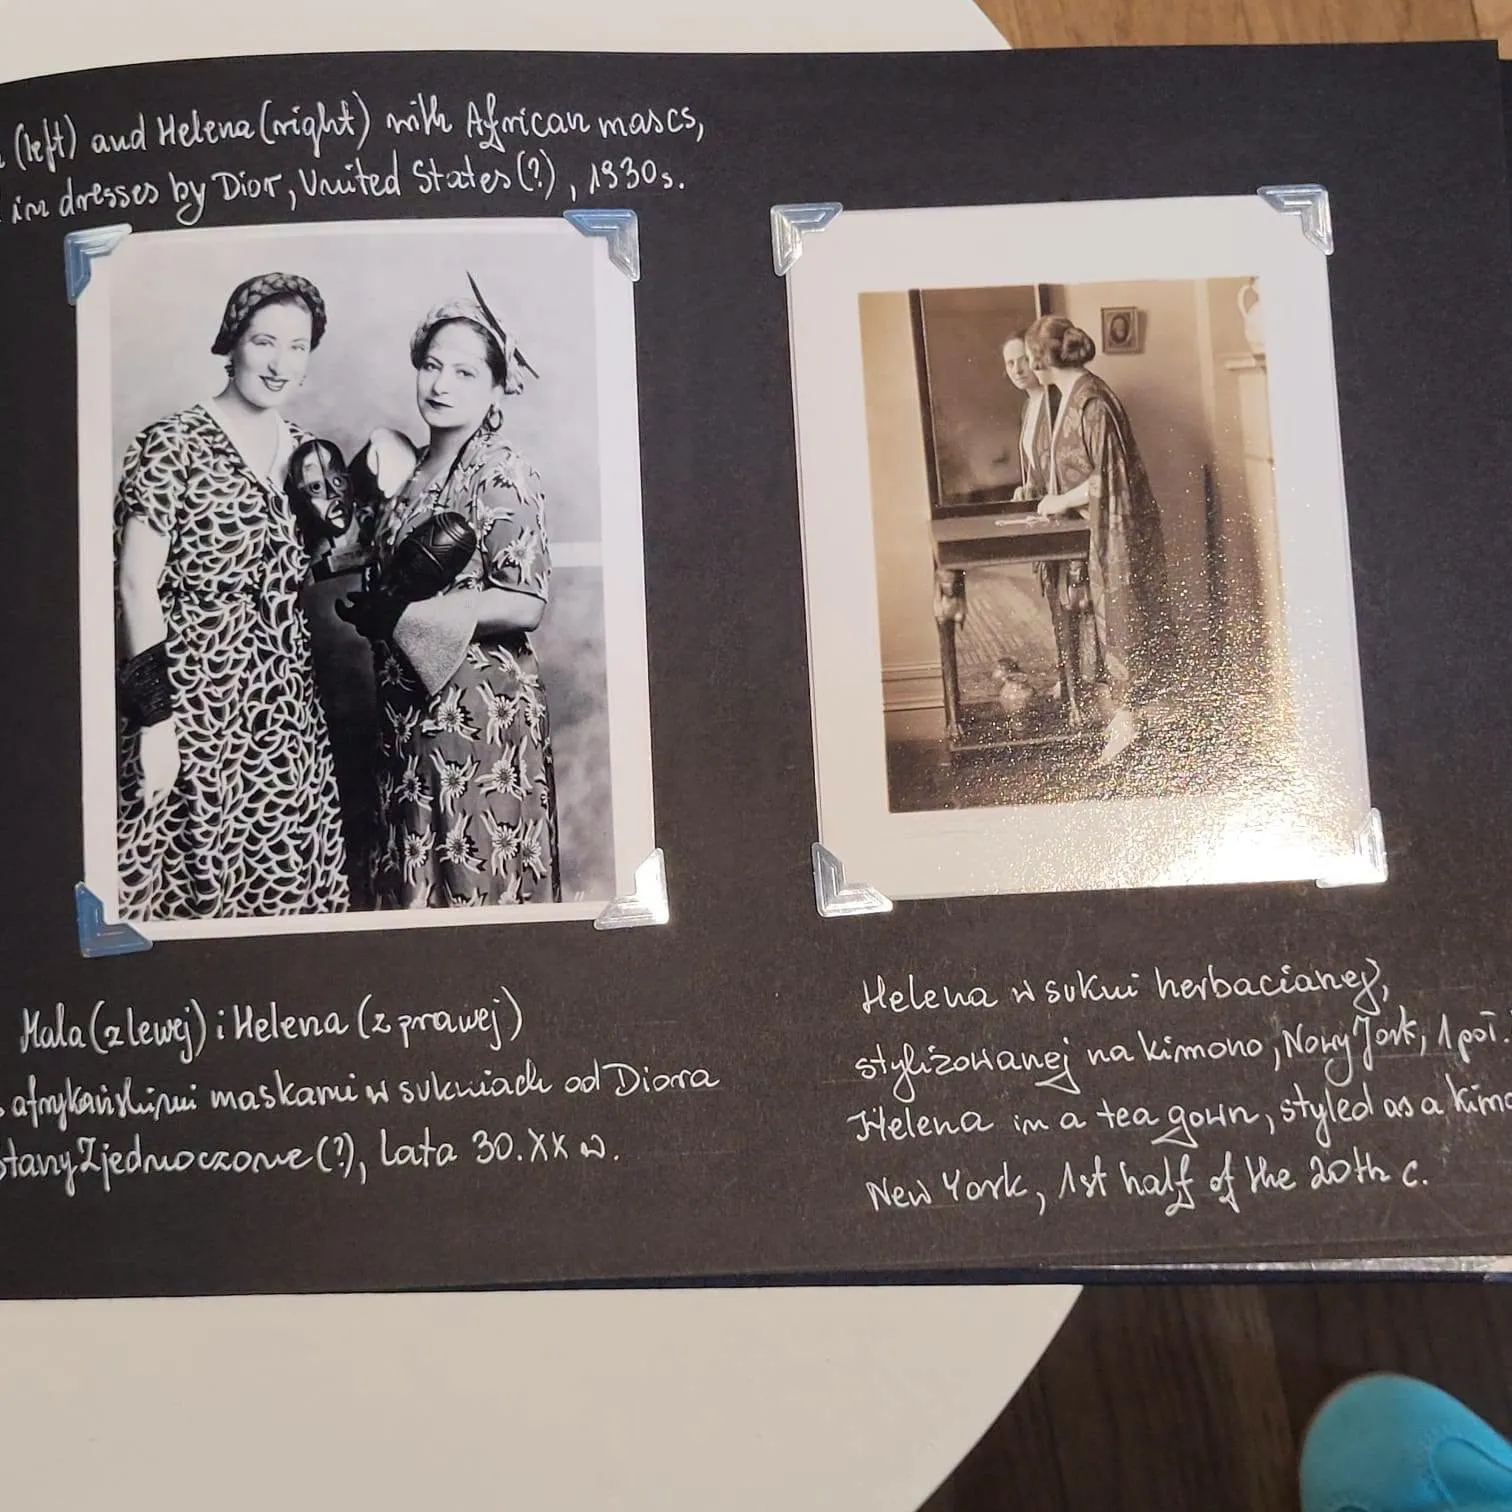 (left) and Helena (right) with African mascs,
in dresses by Dior, United States (?), 1930s.
Mala (z lewej) i Helena (z prawej)
afrykańskimi maskami w sukniach od Diora
Stany Zjednoczone (?), lata 30. XX w.
Helena w sukni herbacianej,
stylizowanej na kimono, Nowy Jork, 1 poł.
Helena in a tea gown, styled as a kimo
New York, 1st half of the 20th c.